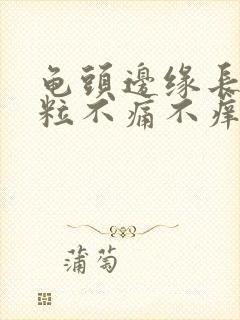 龟頭邊缘長
粒不痛不痒
蒲萄